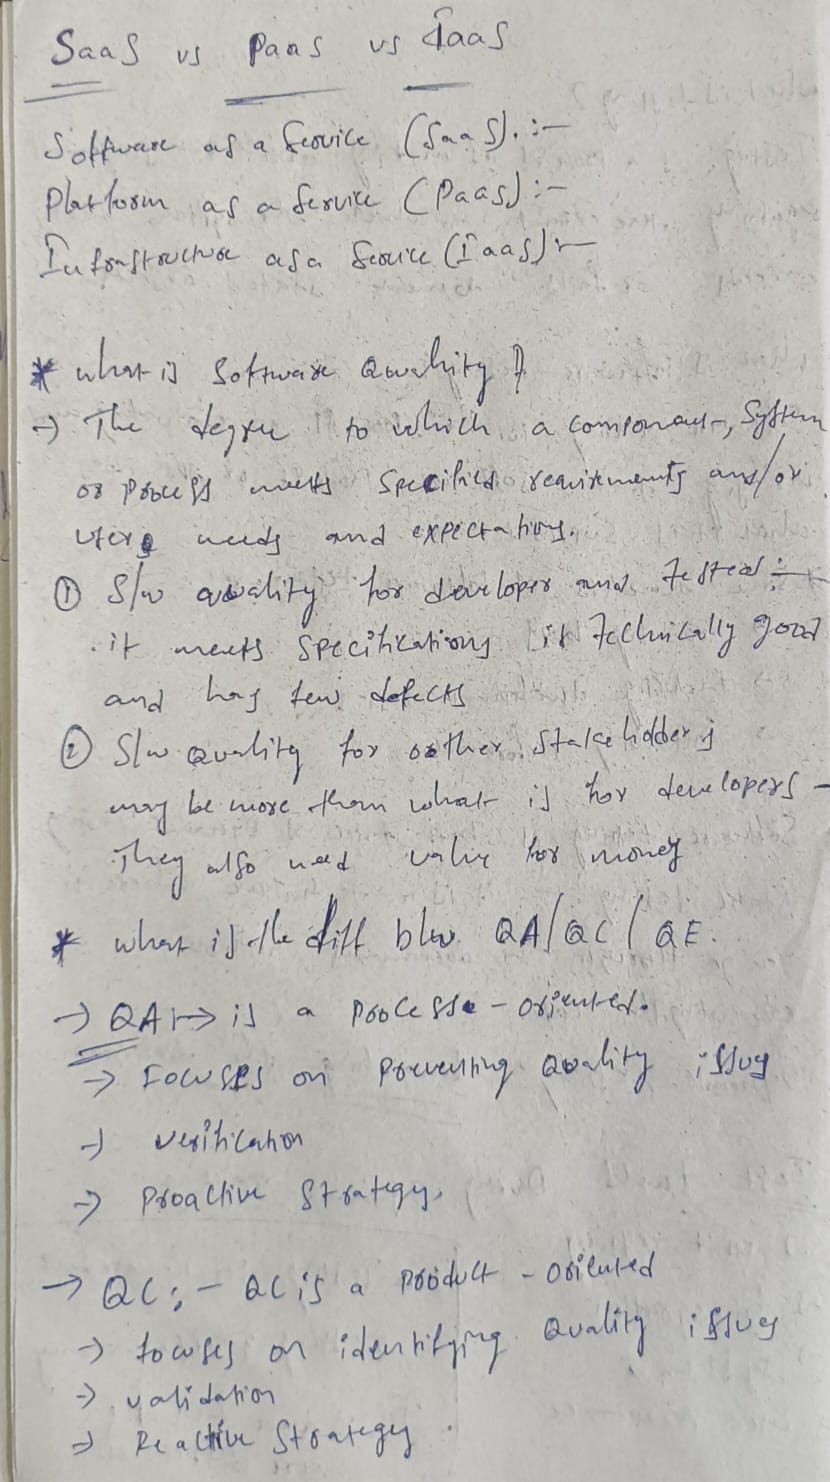 SaaS vs PaaS vs IaaS
Software as a Service (SaaS). :-
Platform as a Service (PaaS) :-
Infrastructure as a Service (IaaS) :-
* what is Software Quality ?
→ The degree to which a component, System
or process meets specified requirements and/or
users needs and expectations.
① S/w quality for developer and Tested :-
. it meets specifications it Technically good
and has few defects
② S/w Quality for other Stakeholders
may be more than what is for developers -
They also need value for money
* what is the diff b/w QA/QC/QE.
→ QA → is a process - oriented.
→ Focuses on Preventing Quality issues
→ verification
→ Proactive Strategy.
→ QC :- QC is a product - oriented
→ focuses on identifying Quality issues
→ validation
→ Reactive Strategy.